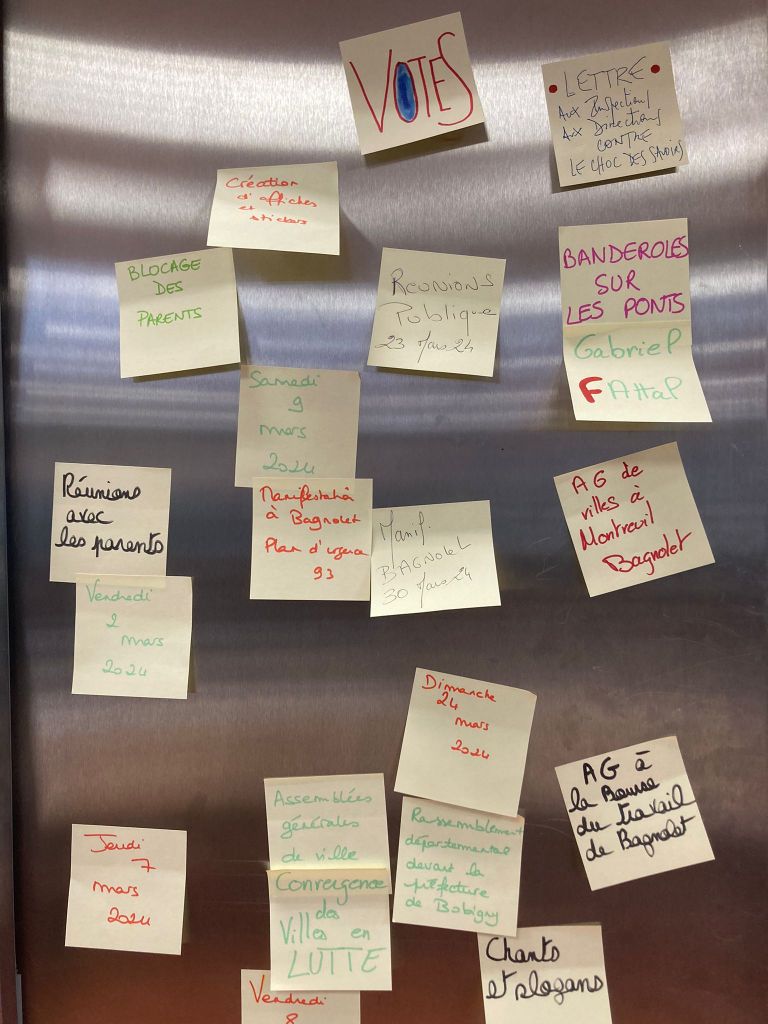 VOTES
LETTRE
AUX Inspections
AUX Directions
CONTRE
LE CHOC DES SAVOIRS
Création
d'affiches
et
stickers
BLOCAGE
DES
PARENTS
REUNIONS
Publique
23 Mars 24
BANDEROLES
SUR
LES PONTS
Gabriel
FAttal
Samedi
9
mars
2024
Réunions
avec
les parents
Manifestation
à Bagnolet
Plan d'urgence
93
Manif.
BAGNOLET
30 Mars 24
AG de
villes à
Montreuil
Bagnolet
Vendredi
2
mars
2024
Dimanche
24
mars
2024
AG à
la Bourse
du travail
de Bagnolet
Assemblées
générales
de ville
Convergence
des
Villes en
LUTTE
Rassemblement
départemental
devant la
préfecture
de Bobigny
Jeudi
7
mars
2024
Chants
et slogans
Vendredi
8